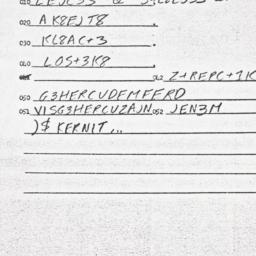 020 AK8EJT8.
030 KL8AC+3.
040 LOS+3K8.
042 Z+REPC+1K
050 G3HERCUDFMFERD
051 VISG3HEPCUZAJN 052 JEN3M
)$ KERNIT...